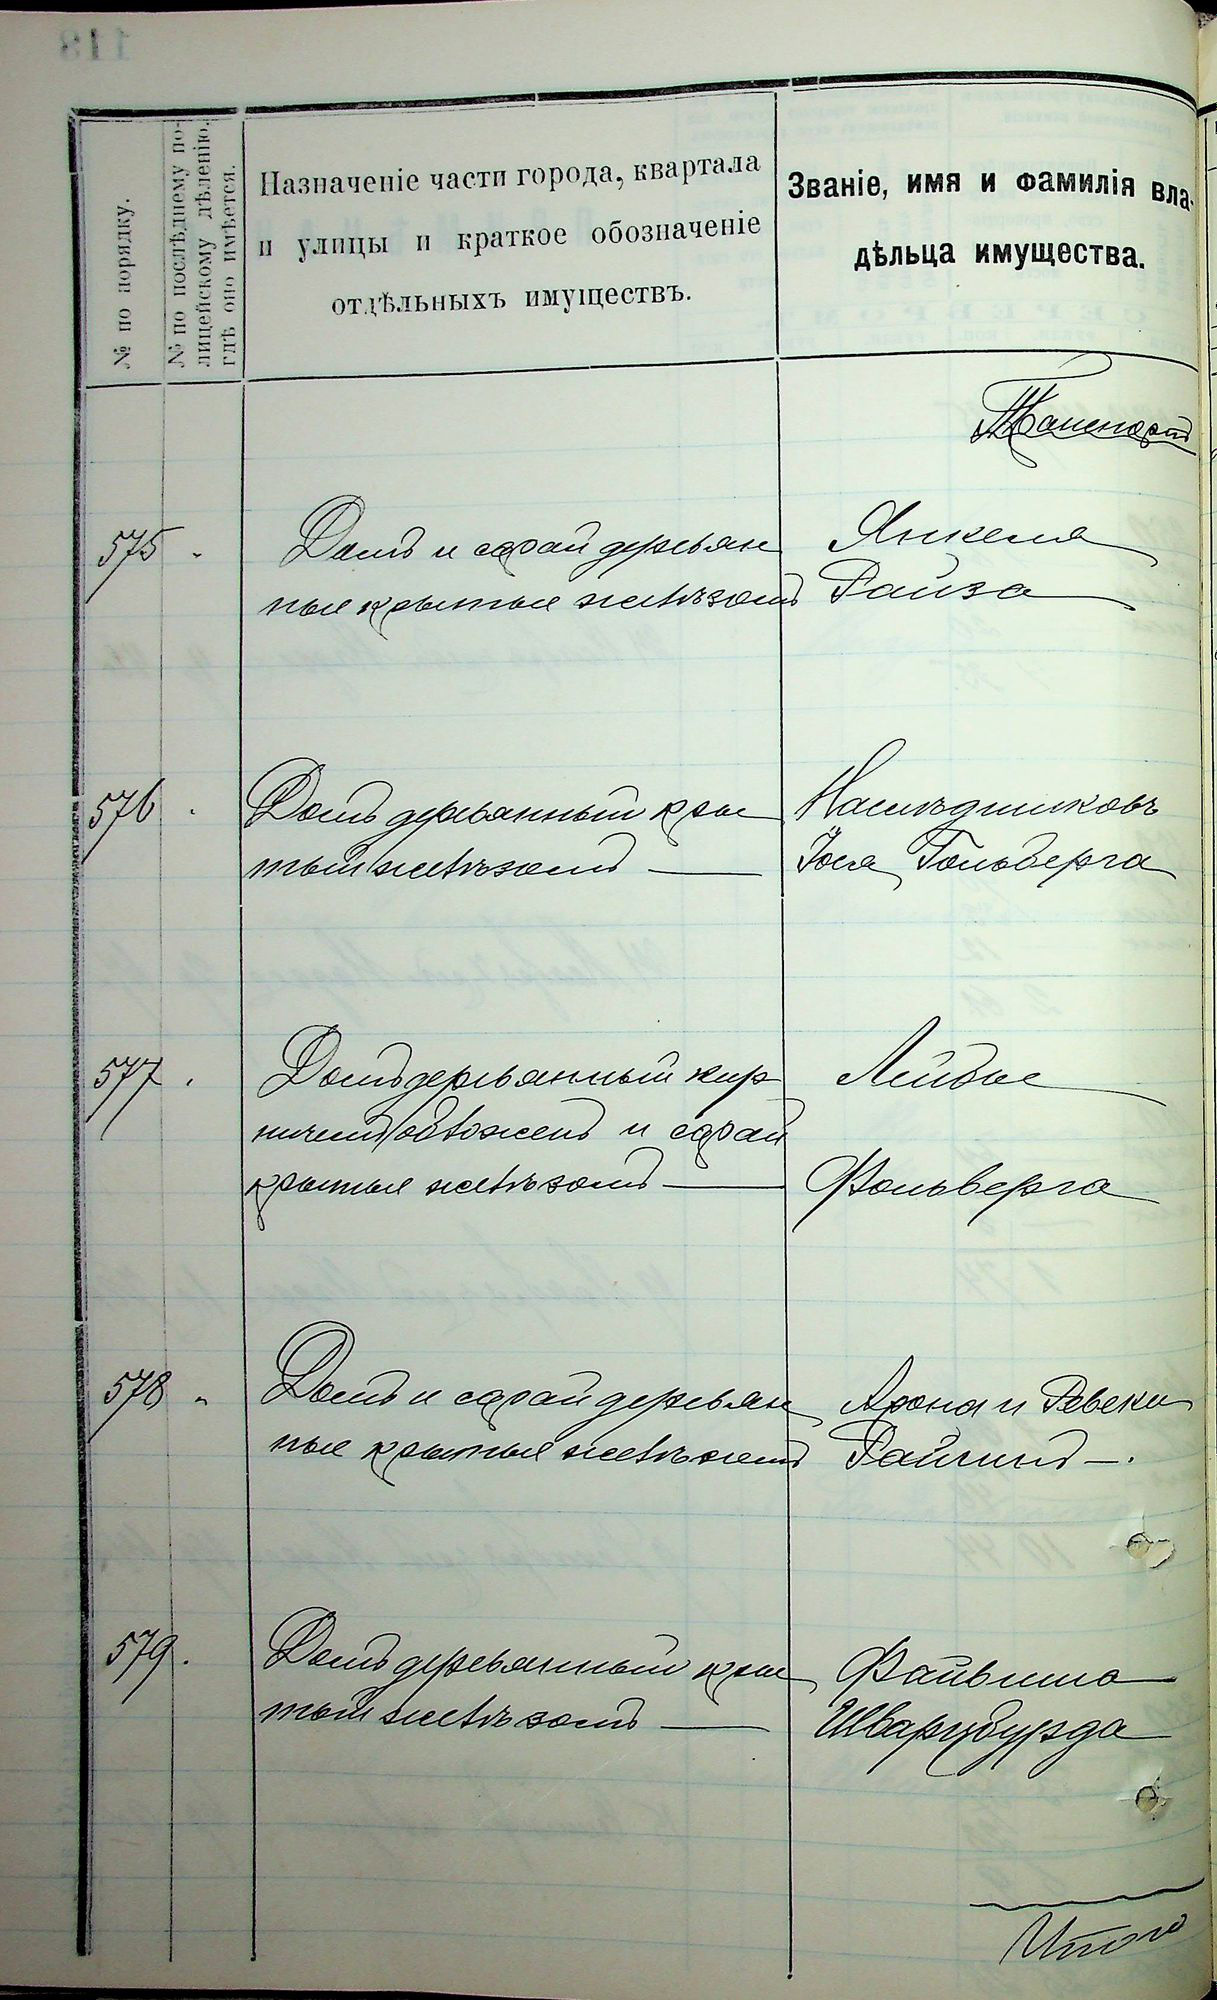 № по порядку.
№ по послѣднему по-
лицейскому дѣленію,
гдѣ оно имѣется.
Назначеніе части города, квартала
и улицы и краткое обозначеніе
отдѣльныхъ имуществъ.
Званіе, имя и фамилія вла-
дѣльца имущества.
575 Домъ и сарай деревян
ные крытые желѣзомъ
Янкеля
Райза
576 Домъ деревянный кры
тый желѣзомъ —
Наслѣдниковъ
Іося Гольберга
577 Домъ деревянный кир
пичемъ обложенъ и сарай
крытые желѣзомъ —
Лейбы
Фольверга
578 Домъ и сарай деревян
ные крытые желѣзомъ
Арона и Ревеки
579 Домъ деревянный кры
тый желѣзомъ —
Файвиша
Шварцбурда
Итого